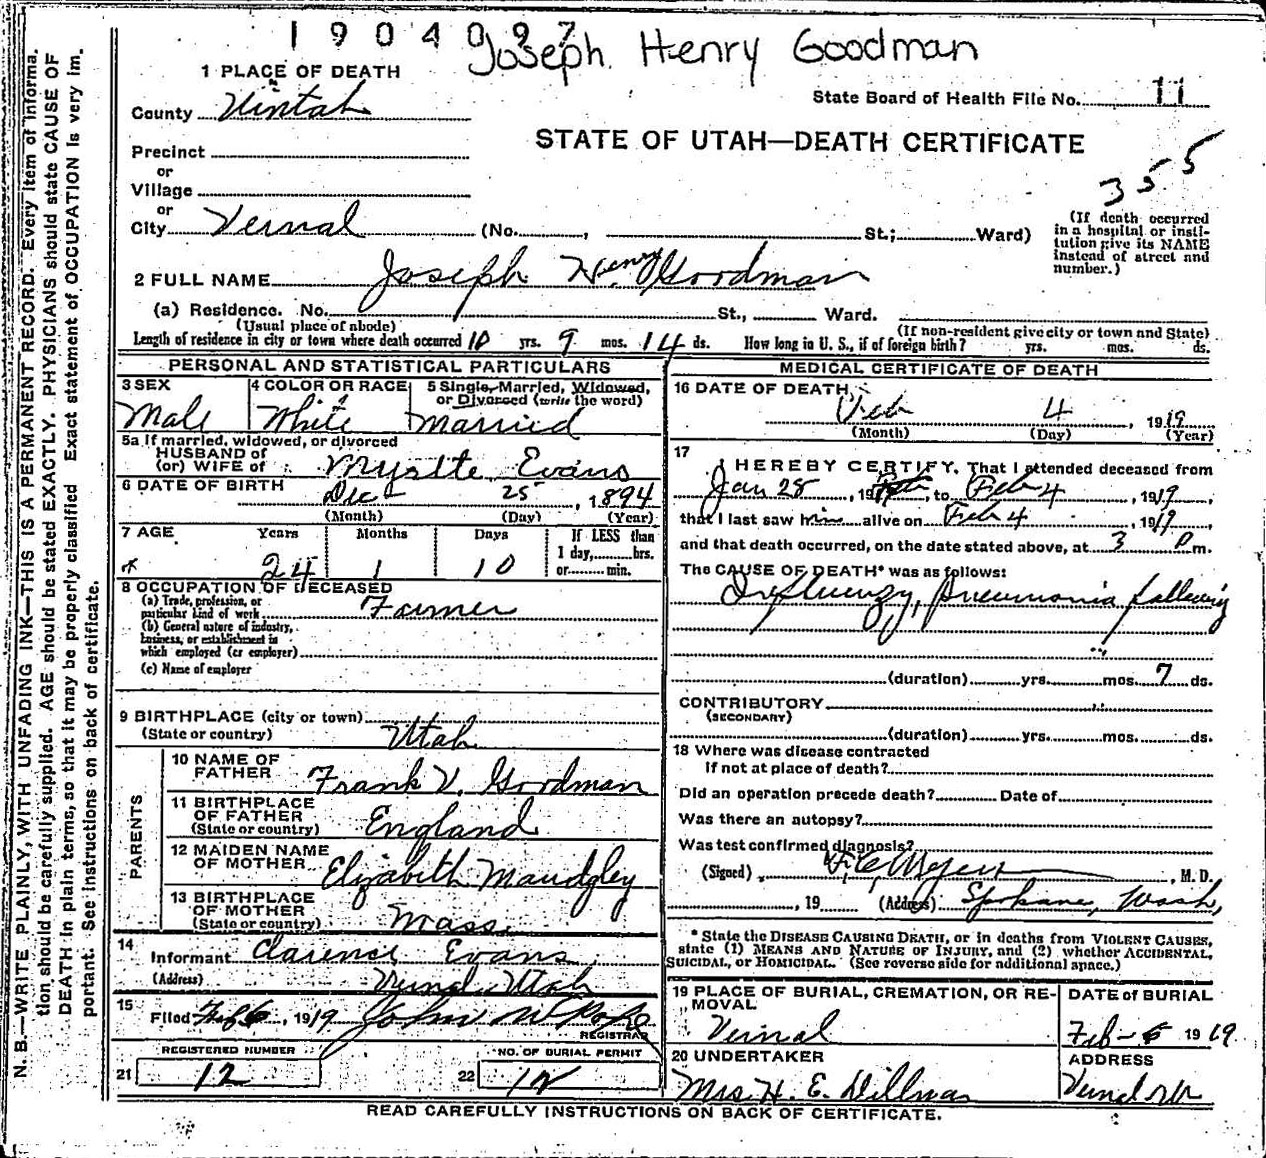 1904097
Joseph Henry Goodman
1 PLACE OF DEATH
County Uintah
State Board of Health File No. 11
STATE OF UTAH—DEATH CERTIFICATE
Precinct
or
Village
or
City Vernal (No. , St.; Ward)
355
(If death occurred
in a hospital or insti-
tution give its NAME
instead of street and
number.)
2 FULL NAME Joseph Henry Goodman
(a) Residence. No. St., Ward.
(Usual place of abode) (If non-resident give city or town and State)
Length of residence in city or town where death occurred 10 yrs. 9 mos. 14 ds. How long in U. S., if of foreign birth? yrs. mos. ds.
PERSONAL AND STATISTICAL PARTICULARS
3 SEX
Male
4 COLOR OR RACE
White
5 Single, Married, Widowed,
or Divorced (write the word)
Married
5a If married, widowed, or divorced
HUSBAND of
(or) WIFE of Myrtle Evans
6 DATE OF BIRTH
Dec 25, 1894
(Month) (Day) (Year)
7 AGE Years Months Days If LESS than
1 day, hrs.
24 1 10 or min.
8 OCCUPATION OF DECEASED
(a) Trade, profession, or
particular kind of work Farmer
(b) General nature of industry,
business, or establishment in
which employed (or employer)
(c) Name of employer
9 BIRTHPLACE (city or town)
(State or country) Utah
PARENTS
10 NAME OF
FATHER Frank V. Goodman
11 BIRTHPLACE
OF FATHER
(State or country) England
12 MAIDEN NAME
OF MOTHER Elizabeth Maudgley
13 BIRTHPLACE
OF MOTHER
(State or country) Mass.
14
Informant Clarence Evans
(Address) Vernal Utah
15
Filed Feb 6, 1919 John W Pope
REGISTRAR
REGISTERED NUMBER
21 12
NO. OF BURIAL PERMIT
22 12
MEDICAL CERTIFICATE OF DEATH
16 DATE OF DEATH
Feb 4, 1919
(Month) (Day) (Year)
17
I HEREBY CERTIFY, That I attended deceased from
Jan 28, 19 to Feb 4, 1919
that I last saw him alive on Feb 4, 1919,
and that death occurred, on the date stated above, at 3 P m.
The CAUSE OF DEATH* was as follows:
Influenza, pneumonia following
(duration) yrs. mos. 7 ds.
CONTRIBUTORY
(SECONDARY)
(duration) yrs. mos. ds.
18 Where was disease contracted
if not at place of death?
Did an operation precede death? Date of
Was there an autopsy?
Was test confirmed diagnosis?
(Signed) , M. D.
, 19 (Address) Spokane, Wash,
* State the DISEASE CAUSING DEATH, or in deaths from VIOLENT CAUSES,
state (1) MEANS AND NATURE OF INJURY, and (2) whether ACCIDENTAL,
SUICIDAL, or HOMICIDAL. (See reverse side for additional space.)
19 PLACE OF BURIAL, CREMATION, OR RE-
MOVAL
Vernal
DATE of BURIAL
Feb - 6 1919
20 UNDERTAKER
Mrs. H. E. Dillman
ADDRESS
Vernal
READ CAREFULLY INSTRUCTIONS ON BACK OF CERTIFICATE.
N. B.—WRITE PLAINLY, WITH UNFADING INK—THIS IS A PERMANENT RECORD. Every item of informa-
tion should be carefully supplied. AGE should be stated EXACTLY. PHYSICIANS should state CAUSE OF
DEATH in plain terms, so that it may be properly classified. Exact statement of OCCUPATION is very im-
portant. See instructions on back of certificate.